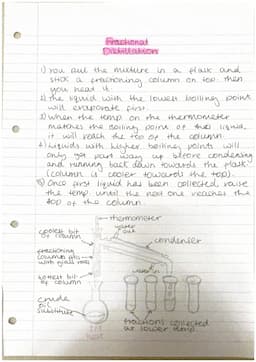 Fractional
Distillation
1) You put the mixture in a flask and
stick a fractioning column on top. Then
you heat it.
2) The liquid with the lowest boiling point
will evaporate first.
3) When the temp on the thermometer
matches the boiling point of this liquid,
it will reach the top of the column.
4) Liquids with higher boiling points will
only get part way up before condensing
and running back down towards the flask
(column is cooler towards the top).
5) Once first liquid has been collected, raise
the temp until the next one reaches the
top of the column.
thermometer
water
out
coolest bit
of column
condenser
fractioning
column
with glass rods
water in
hottest bit
of column
crude
oil
substitute
heat
fractions collected
at lower temp